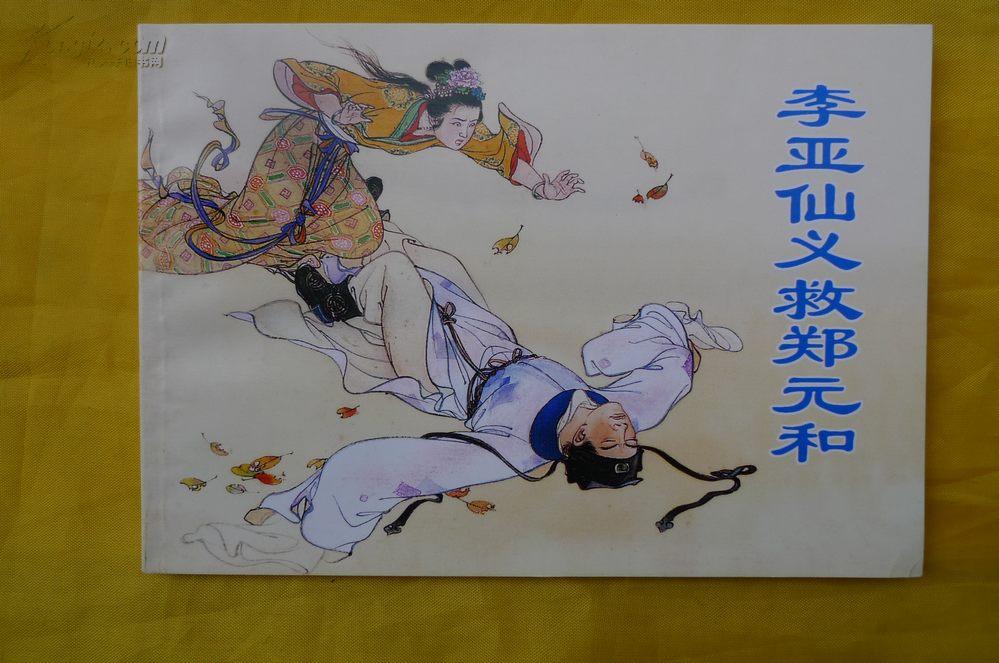 李亚仙义救郑元和